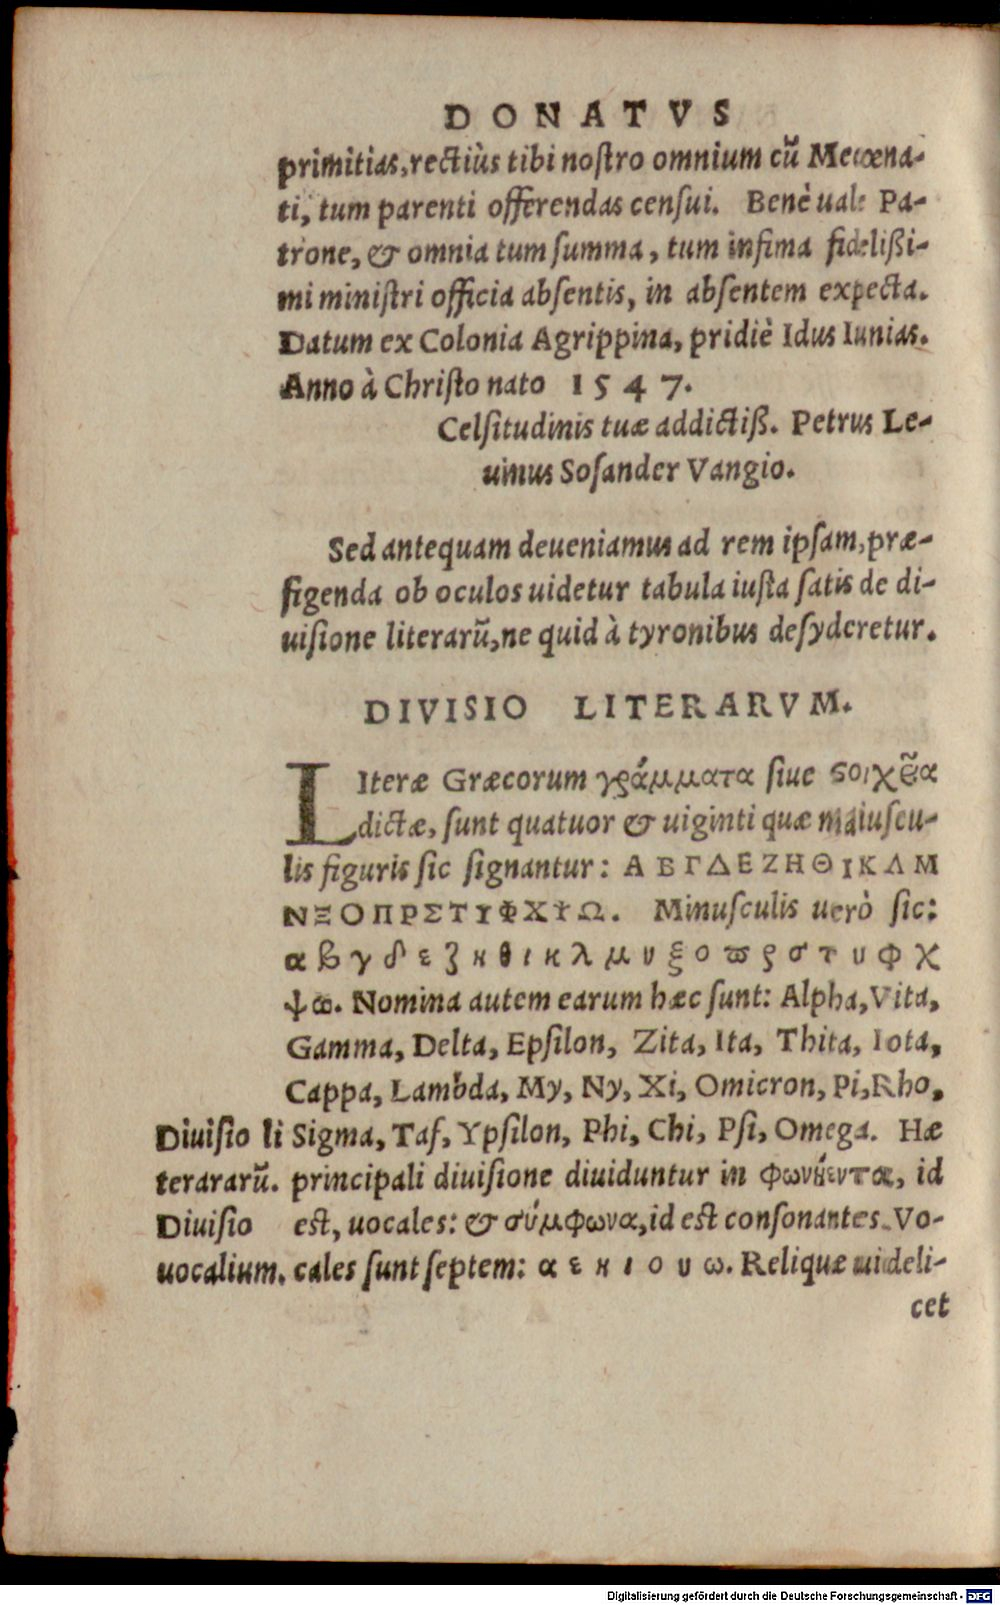 DONATVS
primitias, rectiùs tibi nostro omnium cũ Mecœna-
ti, tum parenti offerendas censui. Benè uale Pa-
trone, & omnia tum summa, tum infima fidelißi-
mi ministri officia absentis, in absentem expecta.
Datum ex Colonia Agrippina, pridiè Idus Iunias.
Anno à Christo nato 1547.
Celsitudinis tuæ addictiß. Petrus Le-
uinus Sosander Vangio.
Sed antequam deueniamus ad rem ipsam, præ-
figenda ob oculos uidetur tabula iusta satis de di-
uisione literarũ, ne quid à tyronibus desyderetur.
DIVISIO LITERARVM.
LIteræ Græcorum γράμματα siue ϛοιχεῖα
dictæ, sunt quatuor & uiginti quæ maiuscu-
lis figuris sic signantur: Α Β Γ Δ Ε Ζ Η Θ Ι Κ Λ Μ
Ν Ξ Ο Π Ρ Σ Τ Υ Φ Χ Ψ Ω. Minusculis uerò sic:
α β γ δ ε ζ η θ ι κ λ μ ν ξ ο ϖ ρ σ τ υ φ χ
ψ ω. Nomina autem earum hæc sunt: Alpha, Vita,
Gamma, Delta, Epsilon, Zita, Ita, Thita, Iota,
Cappa, Lambda, My, Ny, Xi, Omicron, Pi, Rho,
Diuisio li Sigma, Taf, Ypsilon, Phi, Chi, Psi, Omega. Hæ
terararũ. principali diuisione diuiduntur in φωνήεντα, id
Diuisio est, uocales: & σύμφωνα, id est consonantes. Vo-
uocalium. cales sunt septem: α ε η ι ο υ ω. Reliquæ uideli-
cet
Digitalisierung gefördert durch die Deutsche Forschungsgemeinschaft - DFG